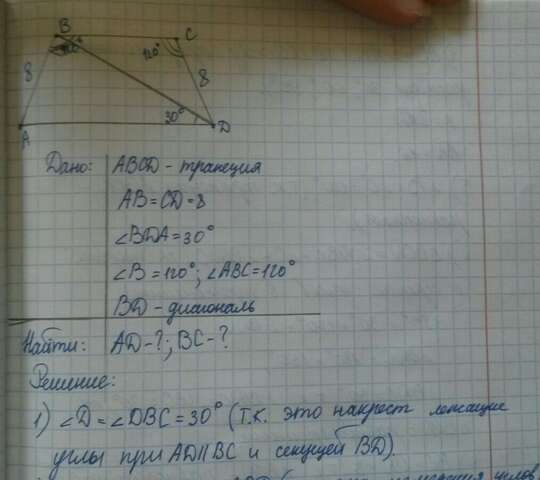 B
C
120°
120°
8
8
30°
A
D
Дано: ABCD - трапеция
AB=CD=8
∠BDA=30°
∠B=120°; ∠ABC=120°
BD-диагональ
Найти: AD-?; BC-?
Решение:
1) ∠D=∠DBC=30° (т.к. это накрест лежащие
углы при AD||BC и секущей BD).